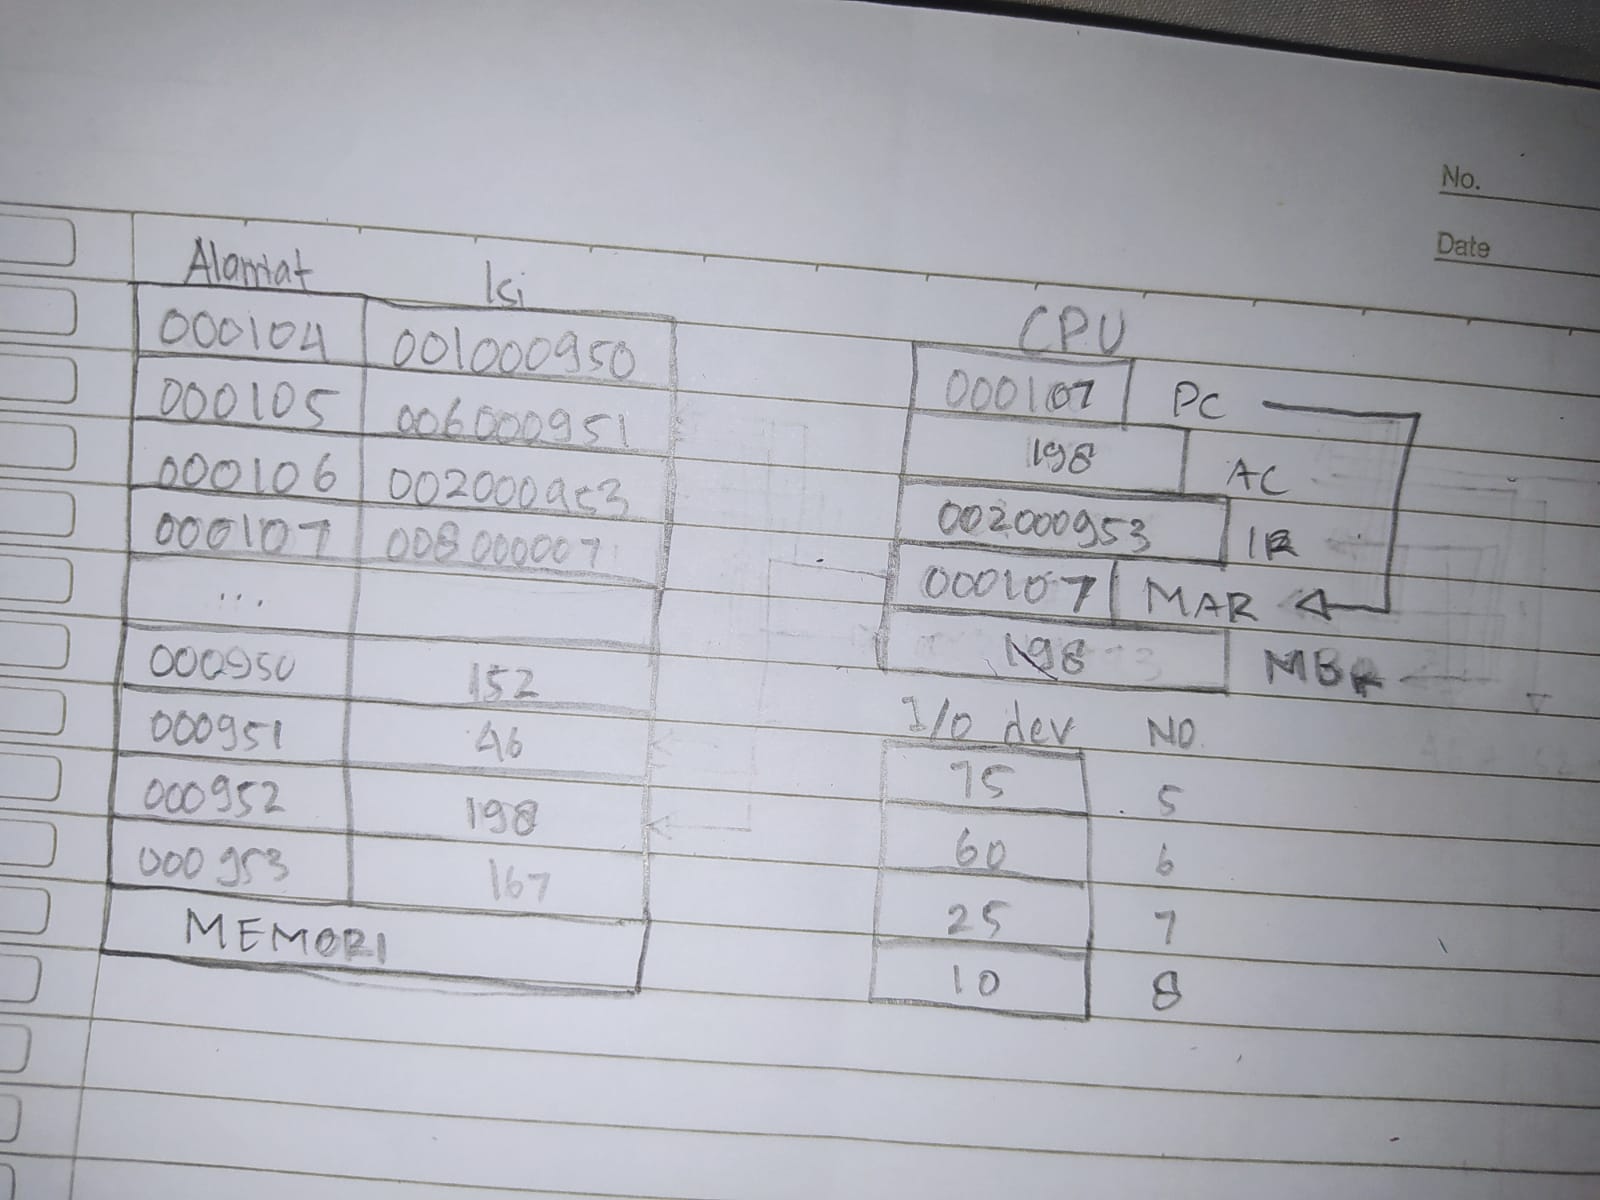 No.
Date
Alamat Isi
000104 001000950
000105 006000951
000106 002000953
000107 008000007
...
000950 152
000951 46
000952 198
000953 167
MEMORI
CPU
000107 PC
198 AC
002000953 IR
000107 MAR
198 MBR
I/O dev NO
75 5
60 6
25 7
10 8